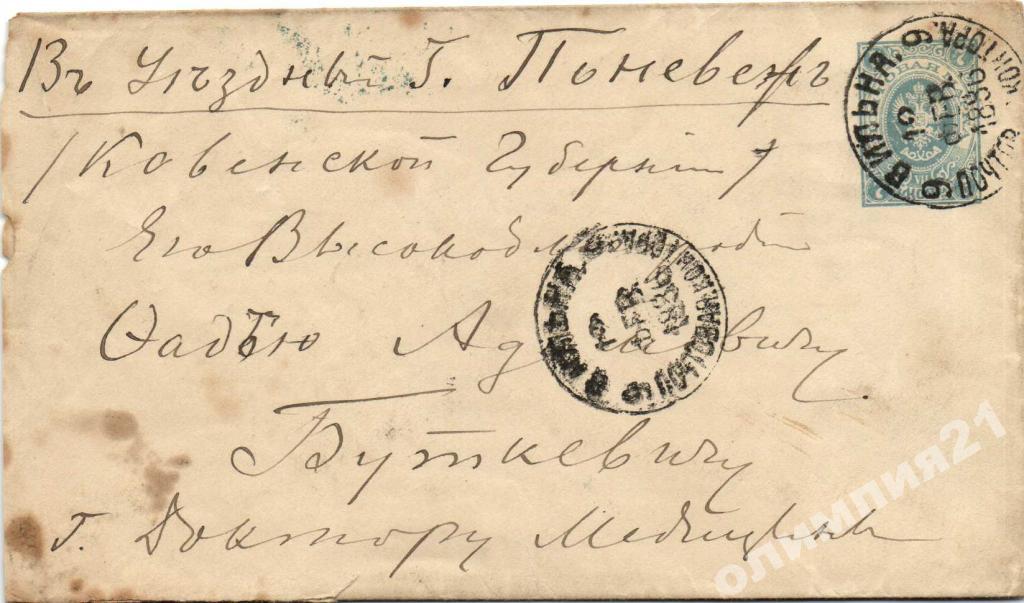 Въ Уѣздный Г. Поневежъ
/ Ковенской Губерніи /
Его Высокоблагородію
Ѳадѣю Адамовичу
Буткевичу
г. Доктору Медицины
ВИЛЬНА. 6
10
ФЕВ.
1886
ПОЧТОВ. КОНТОРА. 6
ВИЛЬНА.
ФЕВ.
1886
ПОЧТОВАЯ КОНТОРА. 6
олимпия21